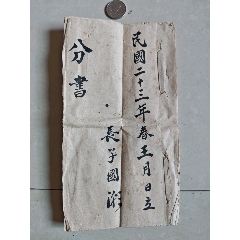 民國二十三年春王月日立
長子國
分書